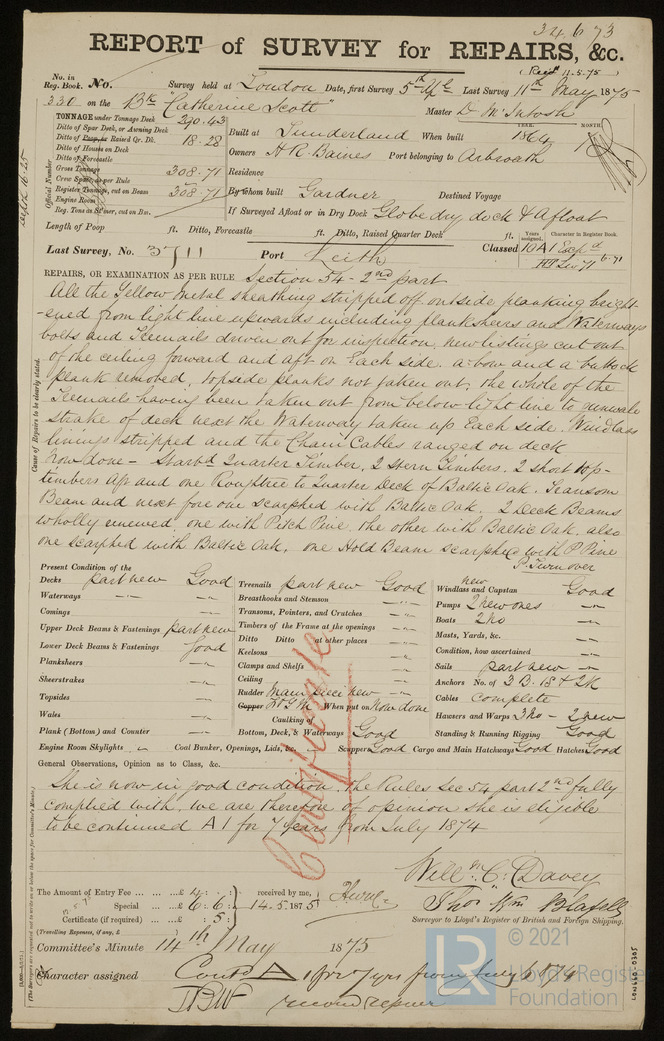 34673
REPORT of SURVEY for REPAIRS, &c.
(Recd 11.5.75)
No. in Reg. Book. No. Survey held at London Date, first Survey 5th Last Survey 11th May 1875
330 on the Bk "Catherine Scott" Master D. McIntosh
TONNAGE under Tonnage Deck 290.43
Ditto of Spar Deck, or Awning Deck
Ditto of Poop, or Raised Qr. Dk. 18.28
Ditto of Houses on Deck
Ditto of Forecastle
Gross Tonnage 308.71
Crew Space, as per Rule
Register Tonnage, cut on Beam 308.71
Engine Room
Reg. Tons as Steamer, cut on Bm.
Official Number
Built at Sunderland When built YEAR. 1864 MONTH. 7
Owners H R Baines Port belonging to Arbroath
Residence
By whom built Gardner Destined Voyage
If Surveyed Afloat or in Dry Dock Globe dry dock & Afloat
Length of Poop ft. Ditto, Forecastle ft. Ditto, Raised Quarter Deck ft.
Years assigned. Character in Register Book.
Last Survey, No. 3711 Port Leith Classed 10 A1
6.71
REPAIRS, OR EXAMINATION AS PER RULE Section 54 - 2nd part
Cause of Repairs to be clearly stated.
All the Yellow metal sheathing stripped off outside planking bright-
ened from light line upwards including planksheers and Waterways
bolts and Treenails driven out for inspection, new listings cut out
of the ceiling forward and aft on Each side. a bow and a buttock
plank removed, topside planks not taken out, the whole of the
Treenails having been taken out from below light line to gunwale
Strake of deck next the Waterway taken up Each side. Windlass
linings stripped and the Chain Cables ranged on deck
Now done - Starbd Quarter Timber, 2 Stern Timbers. 2 short top-
timbers aft and one Roughtree to Quarter Deck of Baltic Oak. Transom
Beam and next fore one scarphed with Baltic Oak. 2 Deck Beams
wholly renewed, one with Pitch Pine the other with Baltic Oak, also
one scarphed with Baltic Oak, one Hold Beam scarphed with P Pine
P. Turn over
Present Condition of the
Decks part new Good
Waterways
Comings
Upper Deck Beams & Fastenings part new
Lower Deck Beams & Fastenings Good
Planksheers
Sheerstrakes
Topsides
Wales
Plank (Bottom) and Counter
Treenails part new Good
Breasthooks and Stemson
Transoms, Pointers, and Crutches
Timbers of the Frame at the openings
Ditto Ditto at other places
Keelsons
Clamps and Shelfs
Ceiling
Rudder Main piece new
Copper Y M When put on Now done
Caulking of
Bottom, Deck, & Waterways Good
new
Windlass and Capstan Good
Pumps 2 new ones
Boats 2 No
Masts, Yards, &c.
Condition, how ascertained
Sails part new
Anchors No. of 3 B. 1S & 2K
Cables Complete
Hausers and Warps 3 No - 2 new
Standing & Running Rigging Good
Engine Room Skylights Coal Bunker, Openings, Lids, &c. Scuppers Good Cargo and Main Hatchways Good Hatches Good
Certificate
General Observations, Opinion as to Class, &c.
She is now in good condition. the Rules Sec 54 part 2nd fully
complied with. we are therefore of opinion she is eligible
to be continued A1 for 7 years from July 1874
The Amount of Entry Fee ... ... ...£ 4 : :
Special ... ...£ 6 : 6 :
Certificate (if required) ... : 5 :
(Travelling Expenses, if any, £ )
received by me,
14.5.1875
Willm C. Davey
Thos Wm
Surveyor to Lloyd's Register of British and Foreign Shipping.
Committee's Minute 14th May 1875
Character assigned Contd A 1 for 7 yrs from July 1874
record repair
© 2021
LR
Lloyd's Register
Foundation
LON660-0305